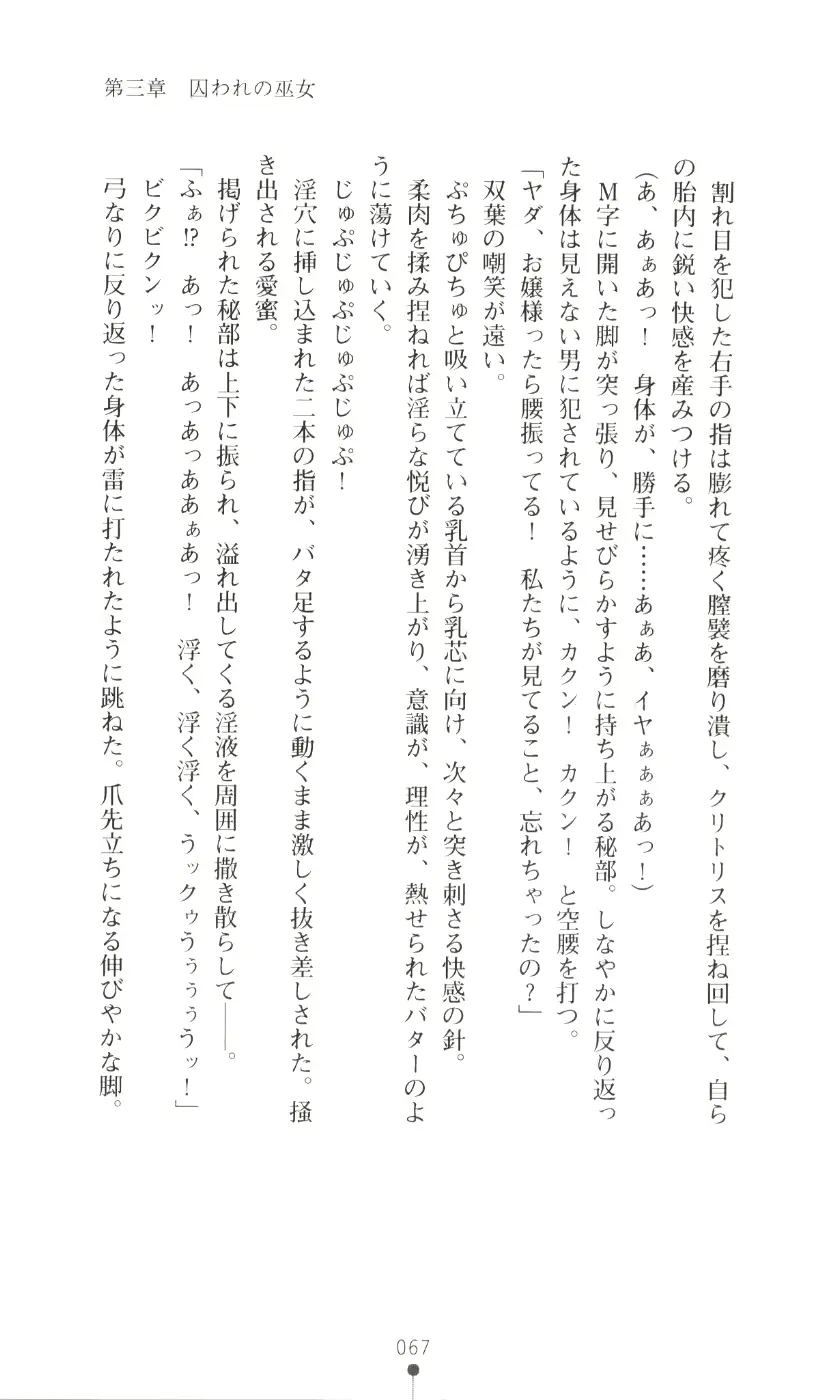 第三章　囚われの巫女
　割れ目を犯した右手の指は膨れて疼く膣襞を磨り潰し、クリトリスを捏ね回して、自ら
の胎内に鋭い快感を産みつける。
（あ、あぁあっ！　身体が、勝手に……あぁあ、イヤぁぁぁあっ！）
　Ｍ字に開いた脚が突っ張り、見せびらかすように持ち上がる秘部。しなやかに反り返っ
た身体は見えない男に犯されているように、カクン！　カクン！　と空腰を打つ。
「ヤダ、お嬢様ったら腰振ってる！　私たちが見てること、忘れちゃったの？」
　双葉の嘲笑が遠い。
　ぷちゅぴちゅと吸い立てている乳首から乳芯に向け、次々と突き刺さる快感の針。
　柔肉を揉み捏ねれば淫らな悦びが湧き上がり、意識が、理性が、熱せられたバターのよ
うに蕩けていく。
　じゅぷじゅぷじゅぷじゅぷ！
　淫穴に挿し込まれた二本の指が、バタ足するように動くまま激しく抜き差しされた。掻
き出される愛蜜。
　掲げられた秘部は上下に振られ、溢れ出してくる淫液を周囲に撒き散らして――。
「ふぁ!?　あっ！　あっあっああぁあっ！　浮く、浮く浮く、うックゥうぅぅぅうッ！」
　ビクビクンッ！
　弓なりに反り返った身体が雷に打たれたように跳ねた。爪先立ちになる伸びやかな脚。
067